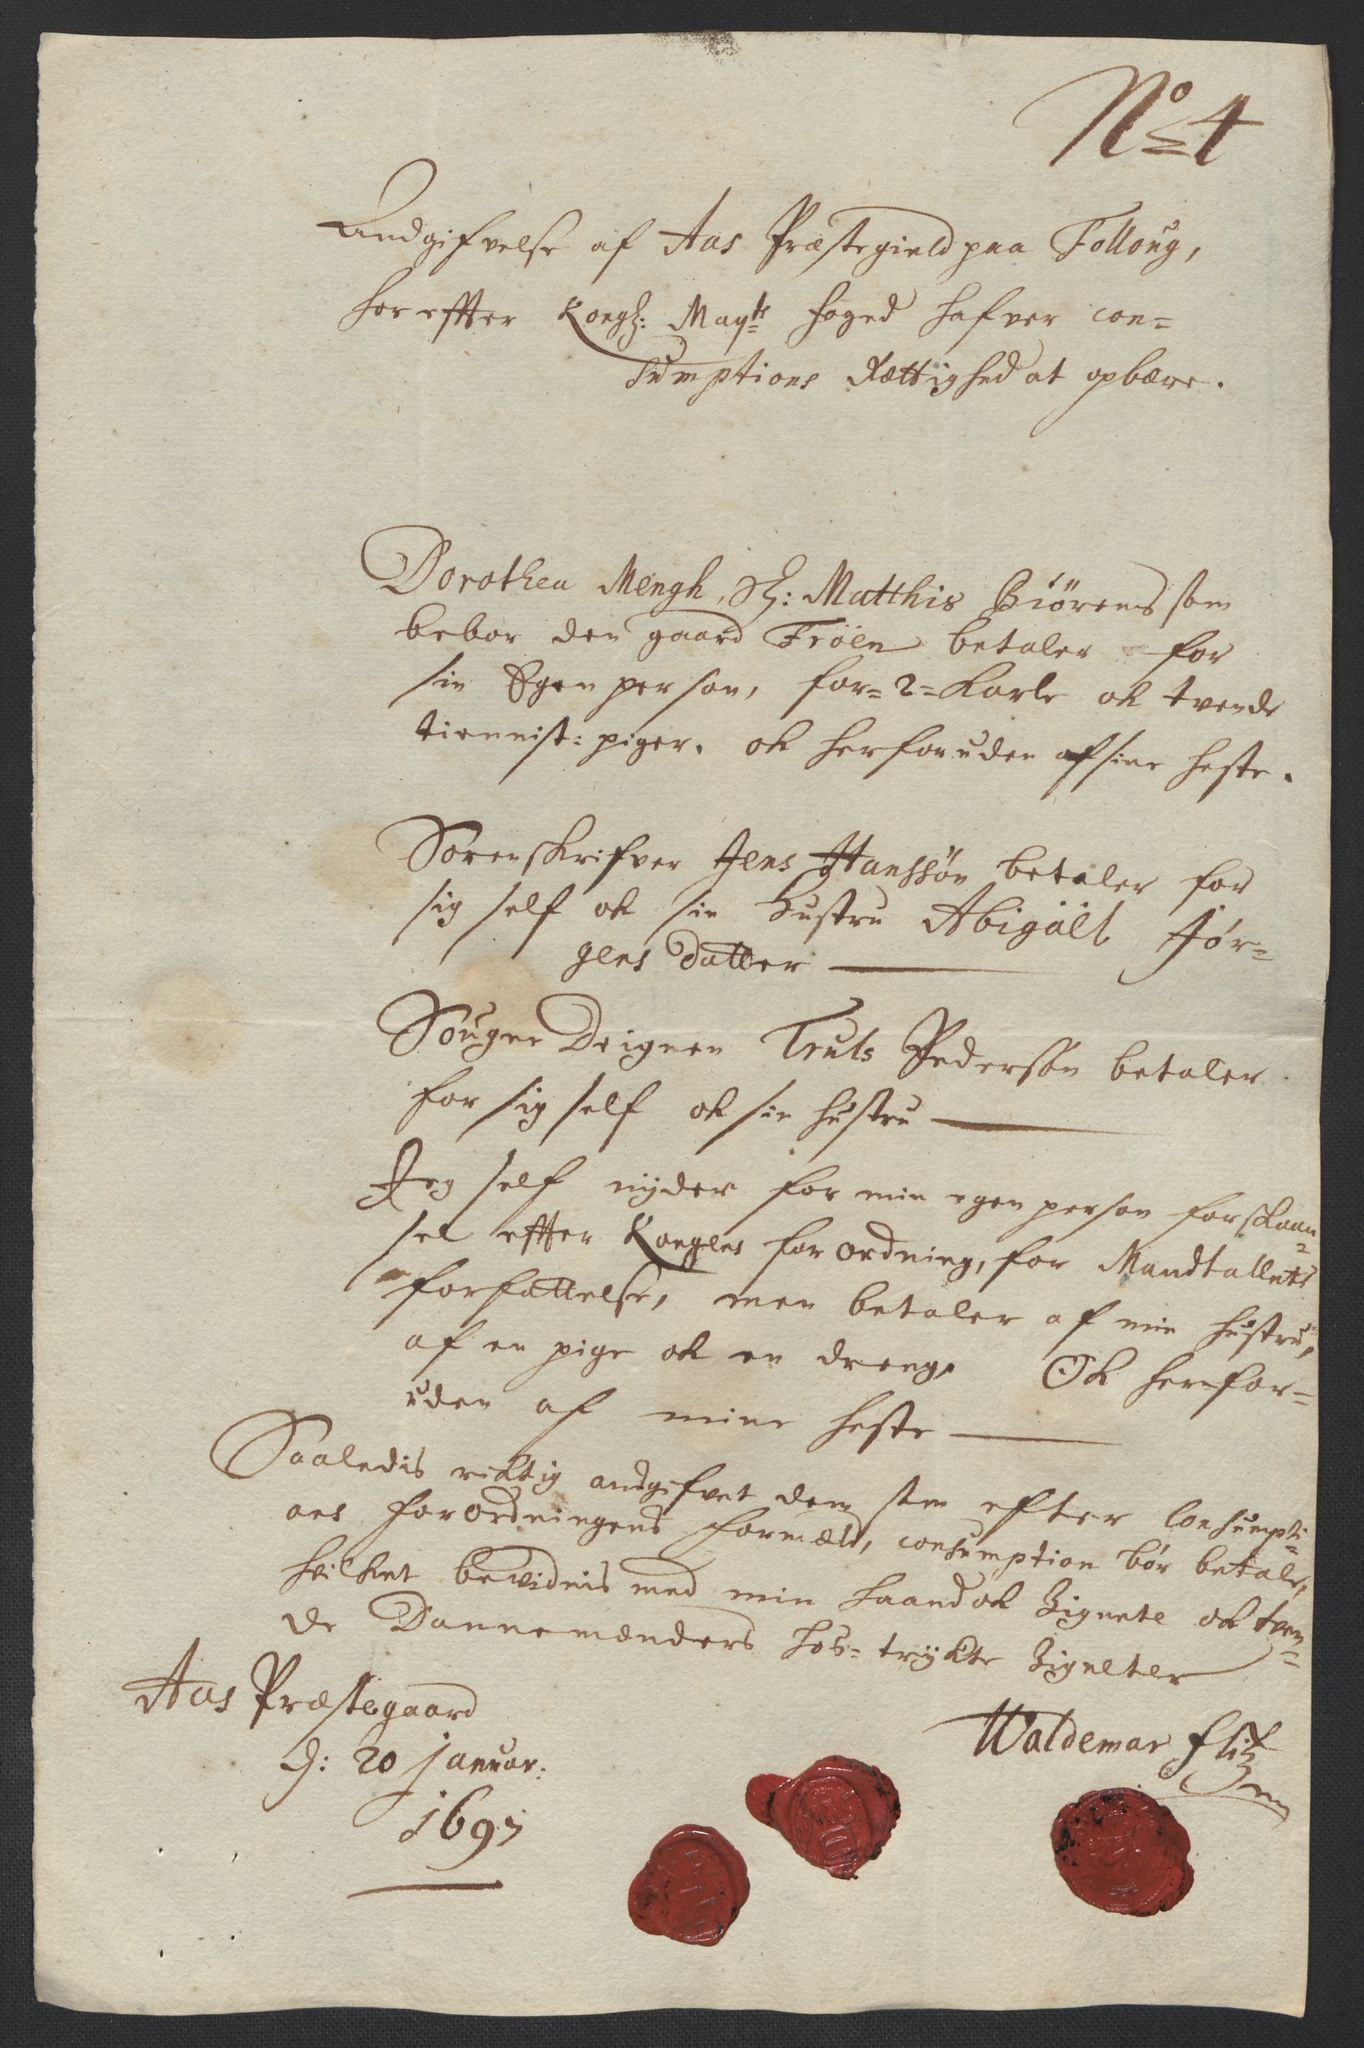 No 4
Andgifvelse af Aas Præstegield paa Folloug,
hor effter Kongl: Mayts foged hafver con=
sumptions Rættighed at opbære.
Dorothea Mengh, Sl: Matthis Biörens som
bebor den gaard Fröen betaler for
sin Egen person, for=2=Karle ok tvende
tiennist=piger. ok herforuden af sine heste.
Sorenskrifver Jens Hanssøn betaler for
sig self ok sin Hustru Abigäel Jør=
gens Datter
Sougne Deignen Truls Pedersøn betaler
for sig self ok sin hustru
Jeg self nyder for min egen person forskaan=
sel effter Konges forordning, for Mandtallets
forfattelse, men betaler af min hustru,
af en pige ok en dreng. Ok herfor=
uden af mine heste
Saaledis riktig andgifvet dem som efter Consumpti=
ons forordningens formæld, consumption bør betale,
hvilket bevidnis med min haand ok Zignete ok tven=
de Dannemænders hos=trykte Zigneter
Aas Præstegaard
d: 20 januar:
1697
Waldemar